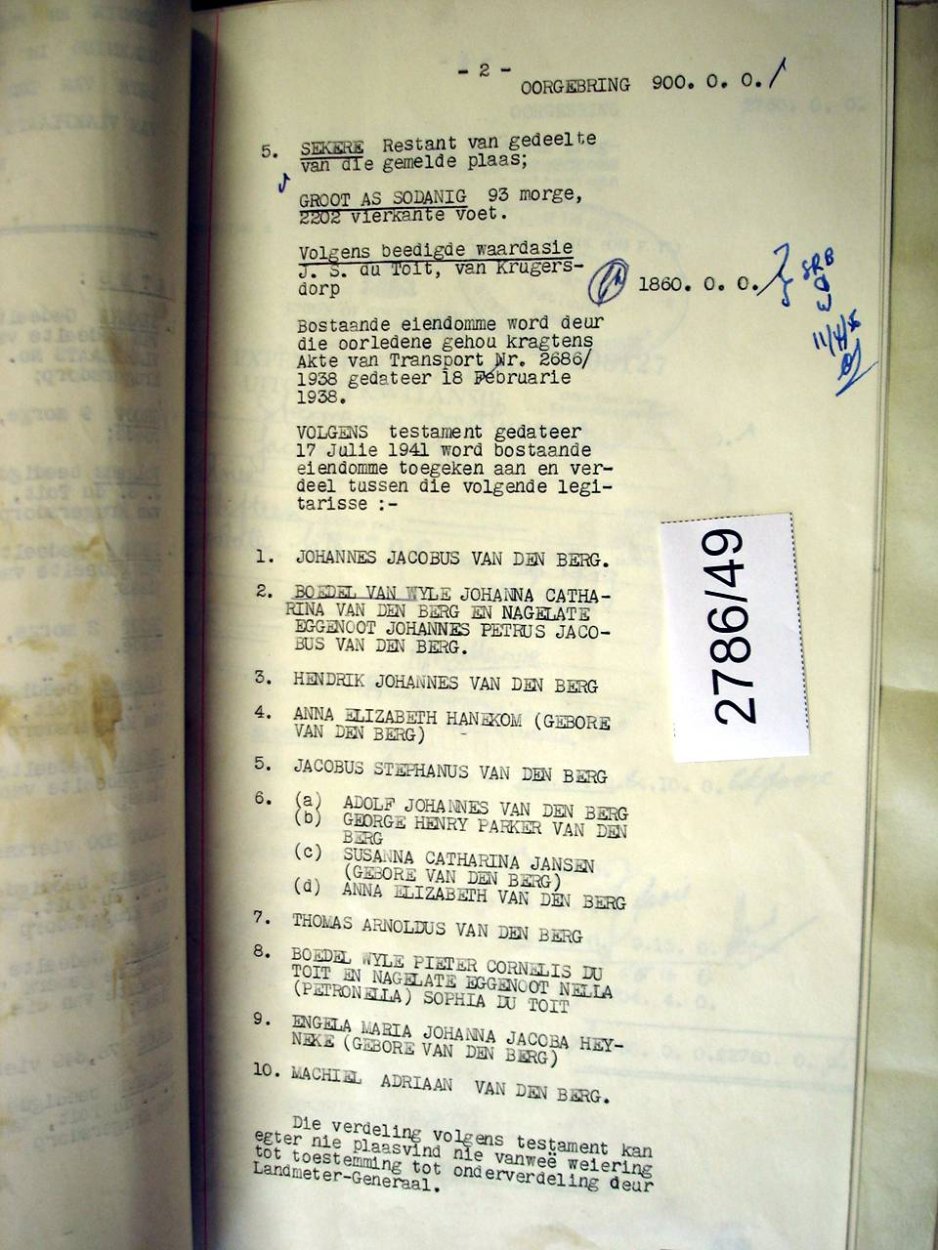 - 2 -
OORGEBRING 900. 0. 0./
5. SEKERE Restant van gedeelte
van die gemelde plaas;
GROOT AS SODANIG 93 morge,
2202 vierkante voet.
Volgens beedigde waardasie
J. S. du Toit, van Krugers-
dorp 1860. 0. 0./
SRB
11/4/
Bostaande eiendomme word deur
die oorledene gehou kragtens
Akte van Transport Nr. 2686/
1938 gedateer 18 Februarie
1938.
VOLGENS testament gedateer
17 Julie 1941 word bostaande
eiendomme toegeken aan en ver-
deel tussen die volgende legi-
tarisse :-
1. JOHANNES JACOBUS VAN DEN BERG.
2. BOEDEL VAN WYLE JOHANNA CATHA-
RINA VAN DEN BERG EN NAGELATE
EGGENOOT JOHANNES PETRUS JACO-
BUS VAN DEN BERG.
3. HENDRIK JOHANNES VAN DEN BERG
4. ANNA ELIZABETH HANEKOM (GEBORE
VAN DEN BERG) -
5. JACOBUS STEPHANUS VAN DEN BERG
6. (a) ADOLF JOHANNES VAN DEN BERG
(b) GEORGE HENRY PARKER VAN DEN
BERG
(c) SUSANNA CATHARINA JANSEN
(GEBORE VAN DEN BERG)
(d) ANNA ELIZABETH VAN DEN BERG
7. THOMAS ARNOLDUS VAN DEN BERG
8. BOEDEL WYLE PIETER CORNELIS DU
TOIT EN NAGELATE EGGENOOT NELLA
(PETRONELLA) SOPHIA DU TOIT
9. ENGELA MARIA JOHANNA JACOBA HEY-
NEKE (GEBORE VAN DEN BERG)
10. MACHIEL ADRIAAN VAN DEN BERG.
Die verdeling volgens testament kan
egter nie plaasvind nie vanweë weiering
tot toestemming tot onderverdeling deur
Landmeter-Generaal.
2786/49